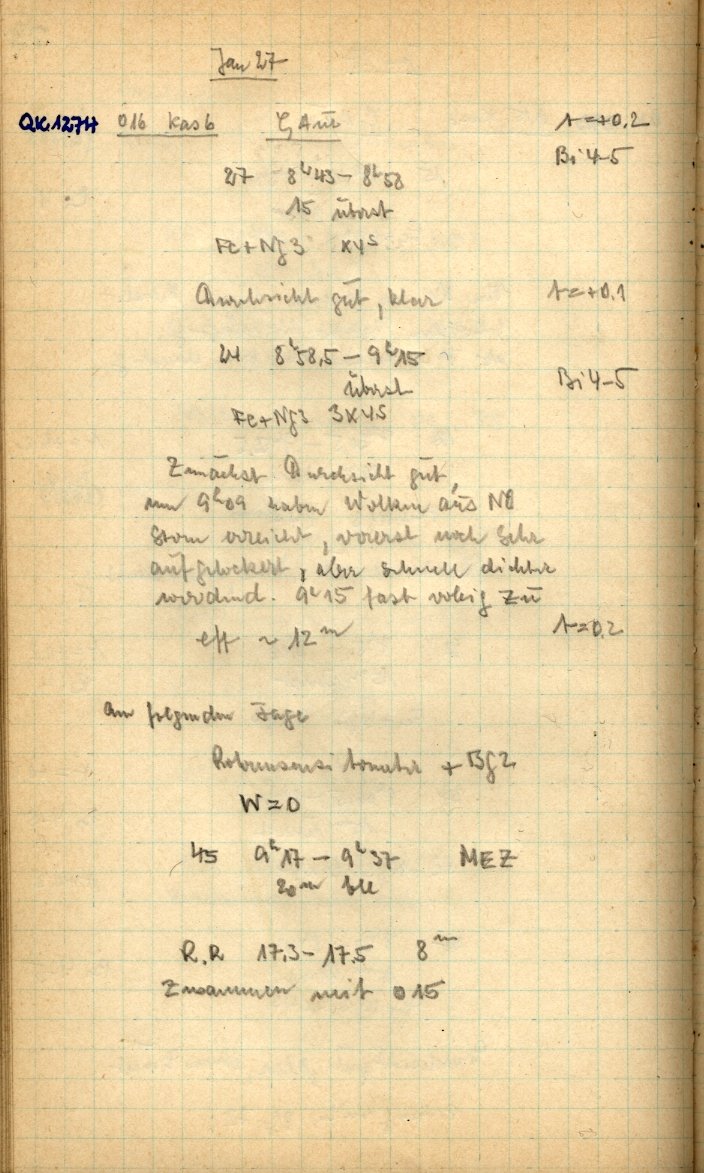 Jan 27
QK.1274 016 Kas 6 ζ Aur Λ=+0,2
Bi 4-5
27 8h43 - 8h58
15 überst
Fe+Ng3 x45
Durchsicht gut, klar Λ=+0,1
24 8h58,5 - 9h15
überst Bi 4-5
Fe+Ng3 3x45
Zunächst Durchsicht gut,
um 9h09 haben Wolken aus NO
Stern erreicht, vorerst noch sehr
aufgelockert, aber schnell dichter
werdend. 9h15 fast völlig zu
eff ~ 12m Λ=0,2
am folgenden Tage
+ BG2
W=0
45 9h17 - 9h37 MEZ
20m bel
R.R 17,3 - 17,5 8m
Zusammen mit 015